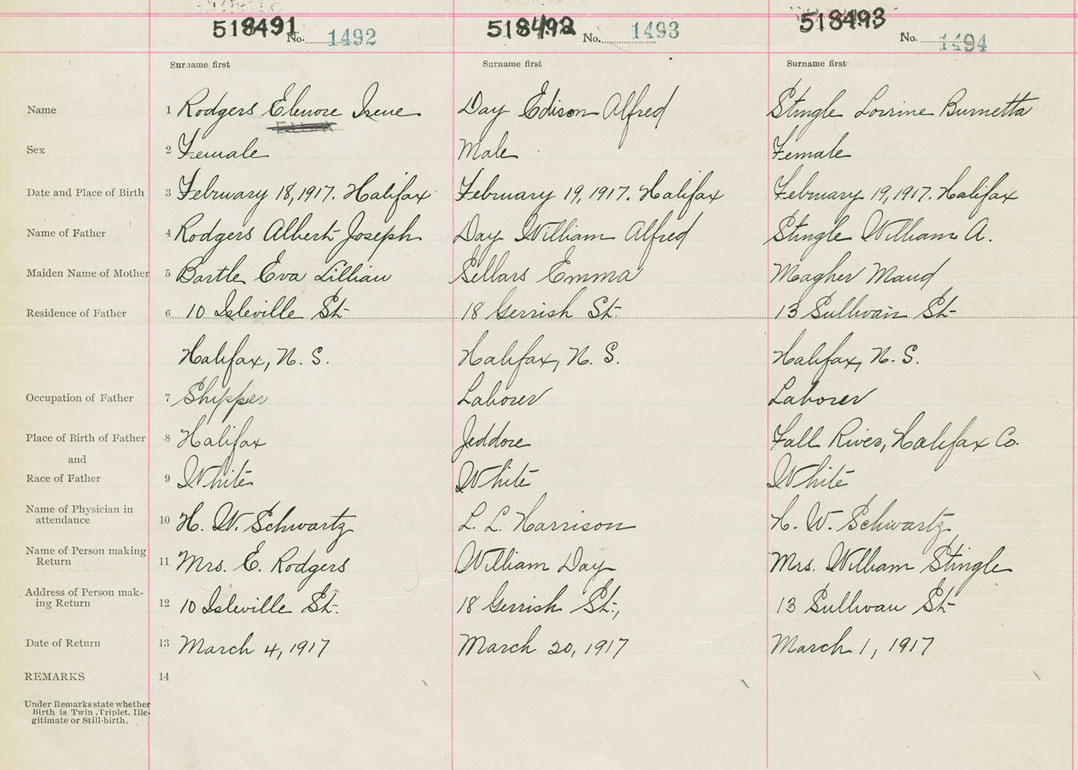 518491 No. 1492 518492 No. 1493 518493 No. 1494
Surname first Surname first Surname first
Name 1 Rodgers Elenore Irene Day Edison Alfred Stingle Lorrine Burnetta
Sex 2 Female Male Female
Date and Place of Birth 3 February 18, 1917. Halifax February 19, 1917. Halifax February 19, 1917. Halifax
Name of Father 4 Rodgers Albert Joseph Day William Alfred Stingle William A.
Maiden Name of Mother 5 Bartle Eva Lillian Sellars Emma Magher Maud
Residence of Father 6 10 Isleville St. 18 Gerrish St. 13 Sullivan St.
Halifax, N. S. Halifax, N. S. Halifax, N. S.
Occupation of Father 7 Shipper Laborer Laborer
Place of Birth of Father 8 Halifax Jeddore Fall River, Halifax Co.
and
Race of Father 9 White White White
Name of Physician in
attendance 10 H. W. Schwartz L. L. Harrison H. W. Schwartz
Name of Person making
Return 11 Mrs. E. Rodgers William Day Mrs. William Stingle
Address of Person mak-
ing Return 12 10 Isleville St. 18 Gerrish St., 13 Sullivan St
Date of Return 13 March 4, 1917 March 20, 1917 March 1, 1917
REMARKS 14
Under Remarks state whether
Birth is Twin, Triplet, Ille-
gitimate or Still-birth.